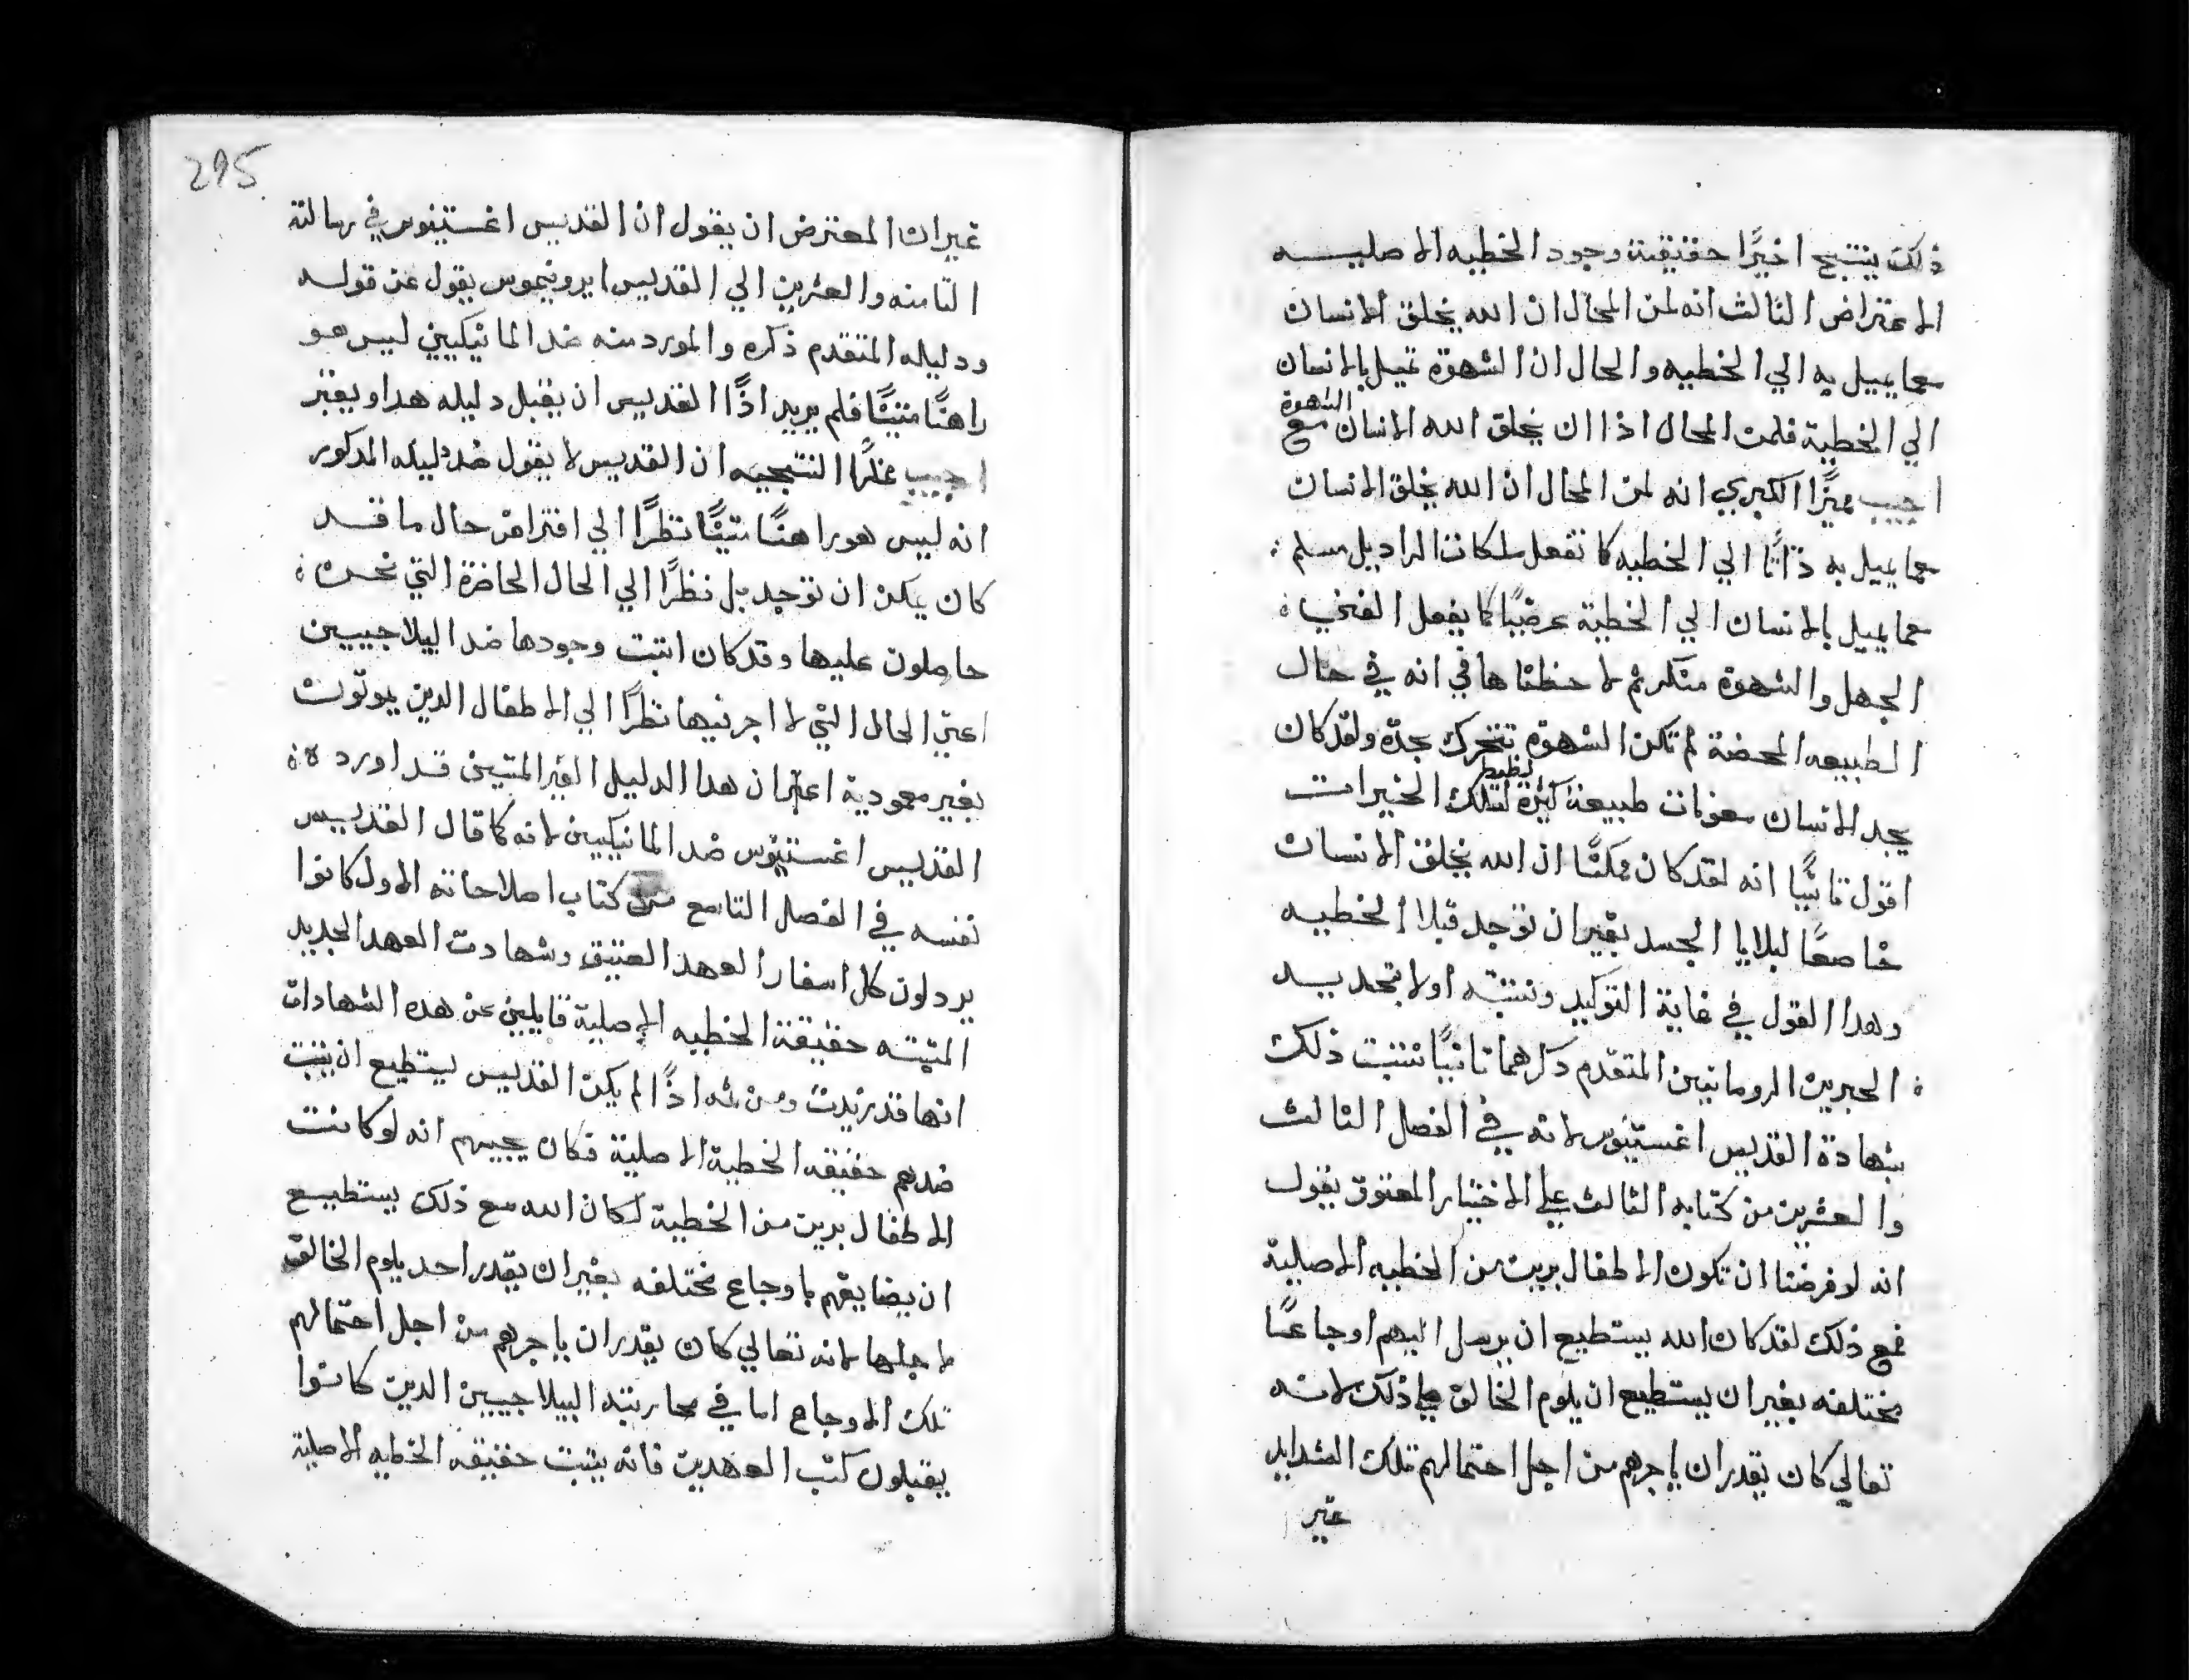 ذلك ينتج اخيرًا حقيقة وجود الخطيه الاصليـــه
الاعتراض الثالث انه لمن المحال ان الله يخلق الانسان
معما يميل به الي الخطيه والحال ان الشهوة تميل بالانسان
الي الخطية فلمن المحال اذا ان يخلق الله الانسان مع الشهوة
اجيب مميزًا الكبري انه لمن المحال ان الله يخلق الانسان
معما يميل به ذاتًا الي الخطيه كما تفعل ملكات الراديل مسلم
معما يميل بالانسان الي الخطية عرضيًا كما يفعل الغني
الجهل والشهوة منكر ثم لاحظنا هافي انه في حال
الطبيعه المحضة لم تكن الشهوة تتحرك بحدة ولقد كان
يجد الانسان معونات طبيعة كثيرة نظير لتلك الخيرات
اقول ثانيًا انه لقد كان ممكنًا ان الله يخلق الانسان
خاضعًا لبلايا الجسد بغير ان توجد قبلا الخطيه
وهدا القول في غاية التوكيد ونتبته اولا بتحديـــد
الحبرين الرومانيين المتقدم دكرهما ثانيًا نتبت ذلك
بشهادة القديس اغستينوس لانه في الفصل الثالث
والعشرين من كتابه الثالث علي الاختيار المعتوق يقول
انه لو فرضنا ان تكون الاطفال بريين من الخطيه الاصلية
فمع ذلك لقد كان الله يستطيع ان يرسل اليهم اوجاعًا
مختلفه بغير ان يستطيع ان يلوم الخالق علي ذلك لانه
تعالي كان يقدر ان ياجرهم من اجل احتمالهم تلك الشدايد
غير
295
غير ان المعترض ان يقول ان القديس اغستينوس في رسالته
الثامنه والعشرين الي القديس ايرونيموس يقول عن قوله
ودليله المتقدم ذكره والمورد منه ضد المانيكيين ليس هو
راهنًا متينًا فلم يريد اذًا القديس ان يقبل دليله هدا ويعتبر
اجيب منكرًا النتيجيه ان القديس لا يقول ضد دليله المدكور
انه ليس هو راهنًا متينًا نظرًا الي افتراض حال ما قــد
كان يمكن ان توجد بل نظرًا الي الحال الحاضرة التي نحن
حاصلون عليها وقد كان اتبت وجودها ضد البيلاجيين
اعني الحال التي لا اجر فيها نظرًا الي الاطفال الدين يموتون
بغير معمودية اعني ان هدا الدليل الغير المتين قد اورده
القديس اغستينوس ضد المانيكيين لانه كما قال القديس
نفسه في الفصل التاسع من كتاب اصلاحاته الاول كانوا
يردلون كل اسفار العهد العتيق وشهادت العهد الجديد
المتبته حقيقة الخطيه الاصلية قايلين عن هده الشهادات
انها قد زيدت ومن ثه اذًا لم يكن القديس يستطيع ان يتبت
ضدهم حقيقه الخطية الاصلية فكان يجيبهم انه لو كانت
الاطفال بريين من الخطية لكان الله مع ذلك يستطيع
ان يضايقهم باوجاع مختلفه بغير ان يقدر احد يلوم الخالق
لاجلها لانه تعالي كان يقدر ان ياجرهم من اجل احتمالهم
تلك الاوجاع اما في محاربته البيلاجيين الدين كانوا
يقبلون كتب العهدين فانه يتبت حقيقه الخطيه الاصلية